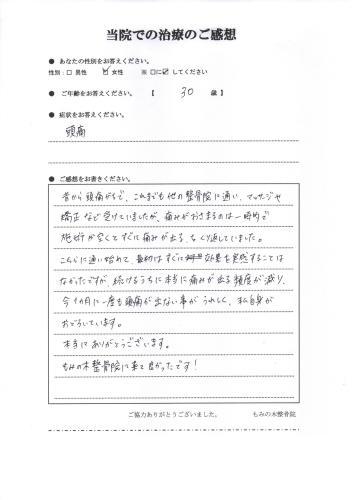 当院での治療のご感想
● あなたの性別をお答えください。
性別：□ 男性 ☑ 女性 ※ □に☑ してください
● ご年齢をお答えください。 【 30 歳 】
● 症状をお答えください。
頭痛
● ご感想をお書きください。
昔から頭痛がちで、これまでも他の整骨院に通い、マッサージや
矯正など受けていましたが、痛みがおさまるのは一時的で
施術が空くとすぐに痛みが出る、をくり返していました。
こちらに通い始めて、最初はすぐに効果を実感することは
なかったですが、続けるうちに本当に痛みが出る頻度が減り、
今1ヵ月に一度も頭痛が出ない事がうれしく、私自身が
おどろいています。
本当にありがとうございます。
もみの木整骨院に来て良かったです！
ご協力ありがとうございました。 もみの木整骨院